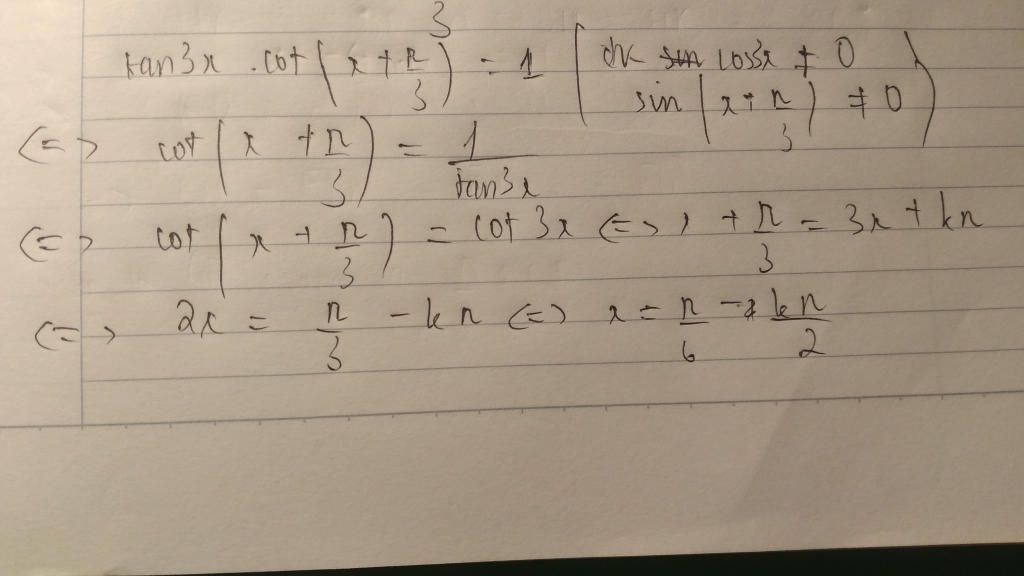 3
tan3x . cot(x + π/3) = 1 (đk sin cos3x ≠ 0
sin(x + π/3) ≠ 0)
<=> cot(x + π/3) = 1/tan3x
<=> cot(x + π/3) = cot 3x <=> x + π/3 = 3x + kπ
<=> 2x = π/3 - kπ <=> x = π/6 - kπ/2